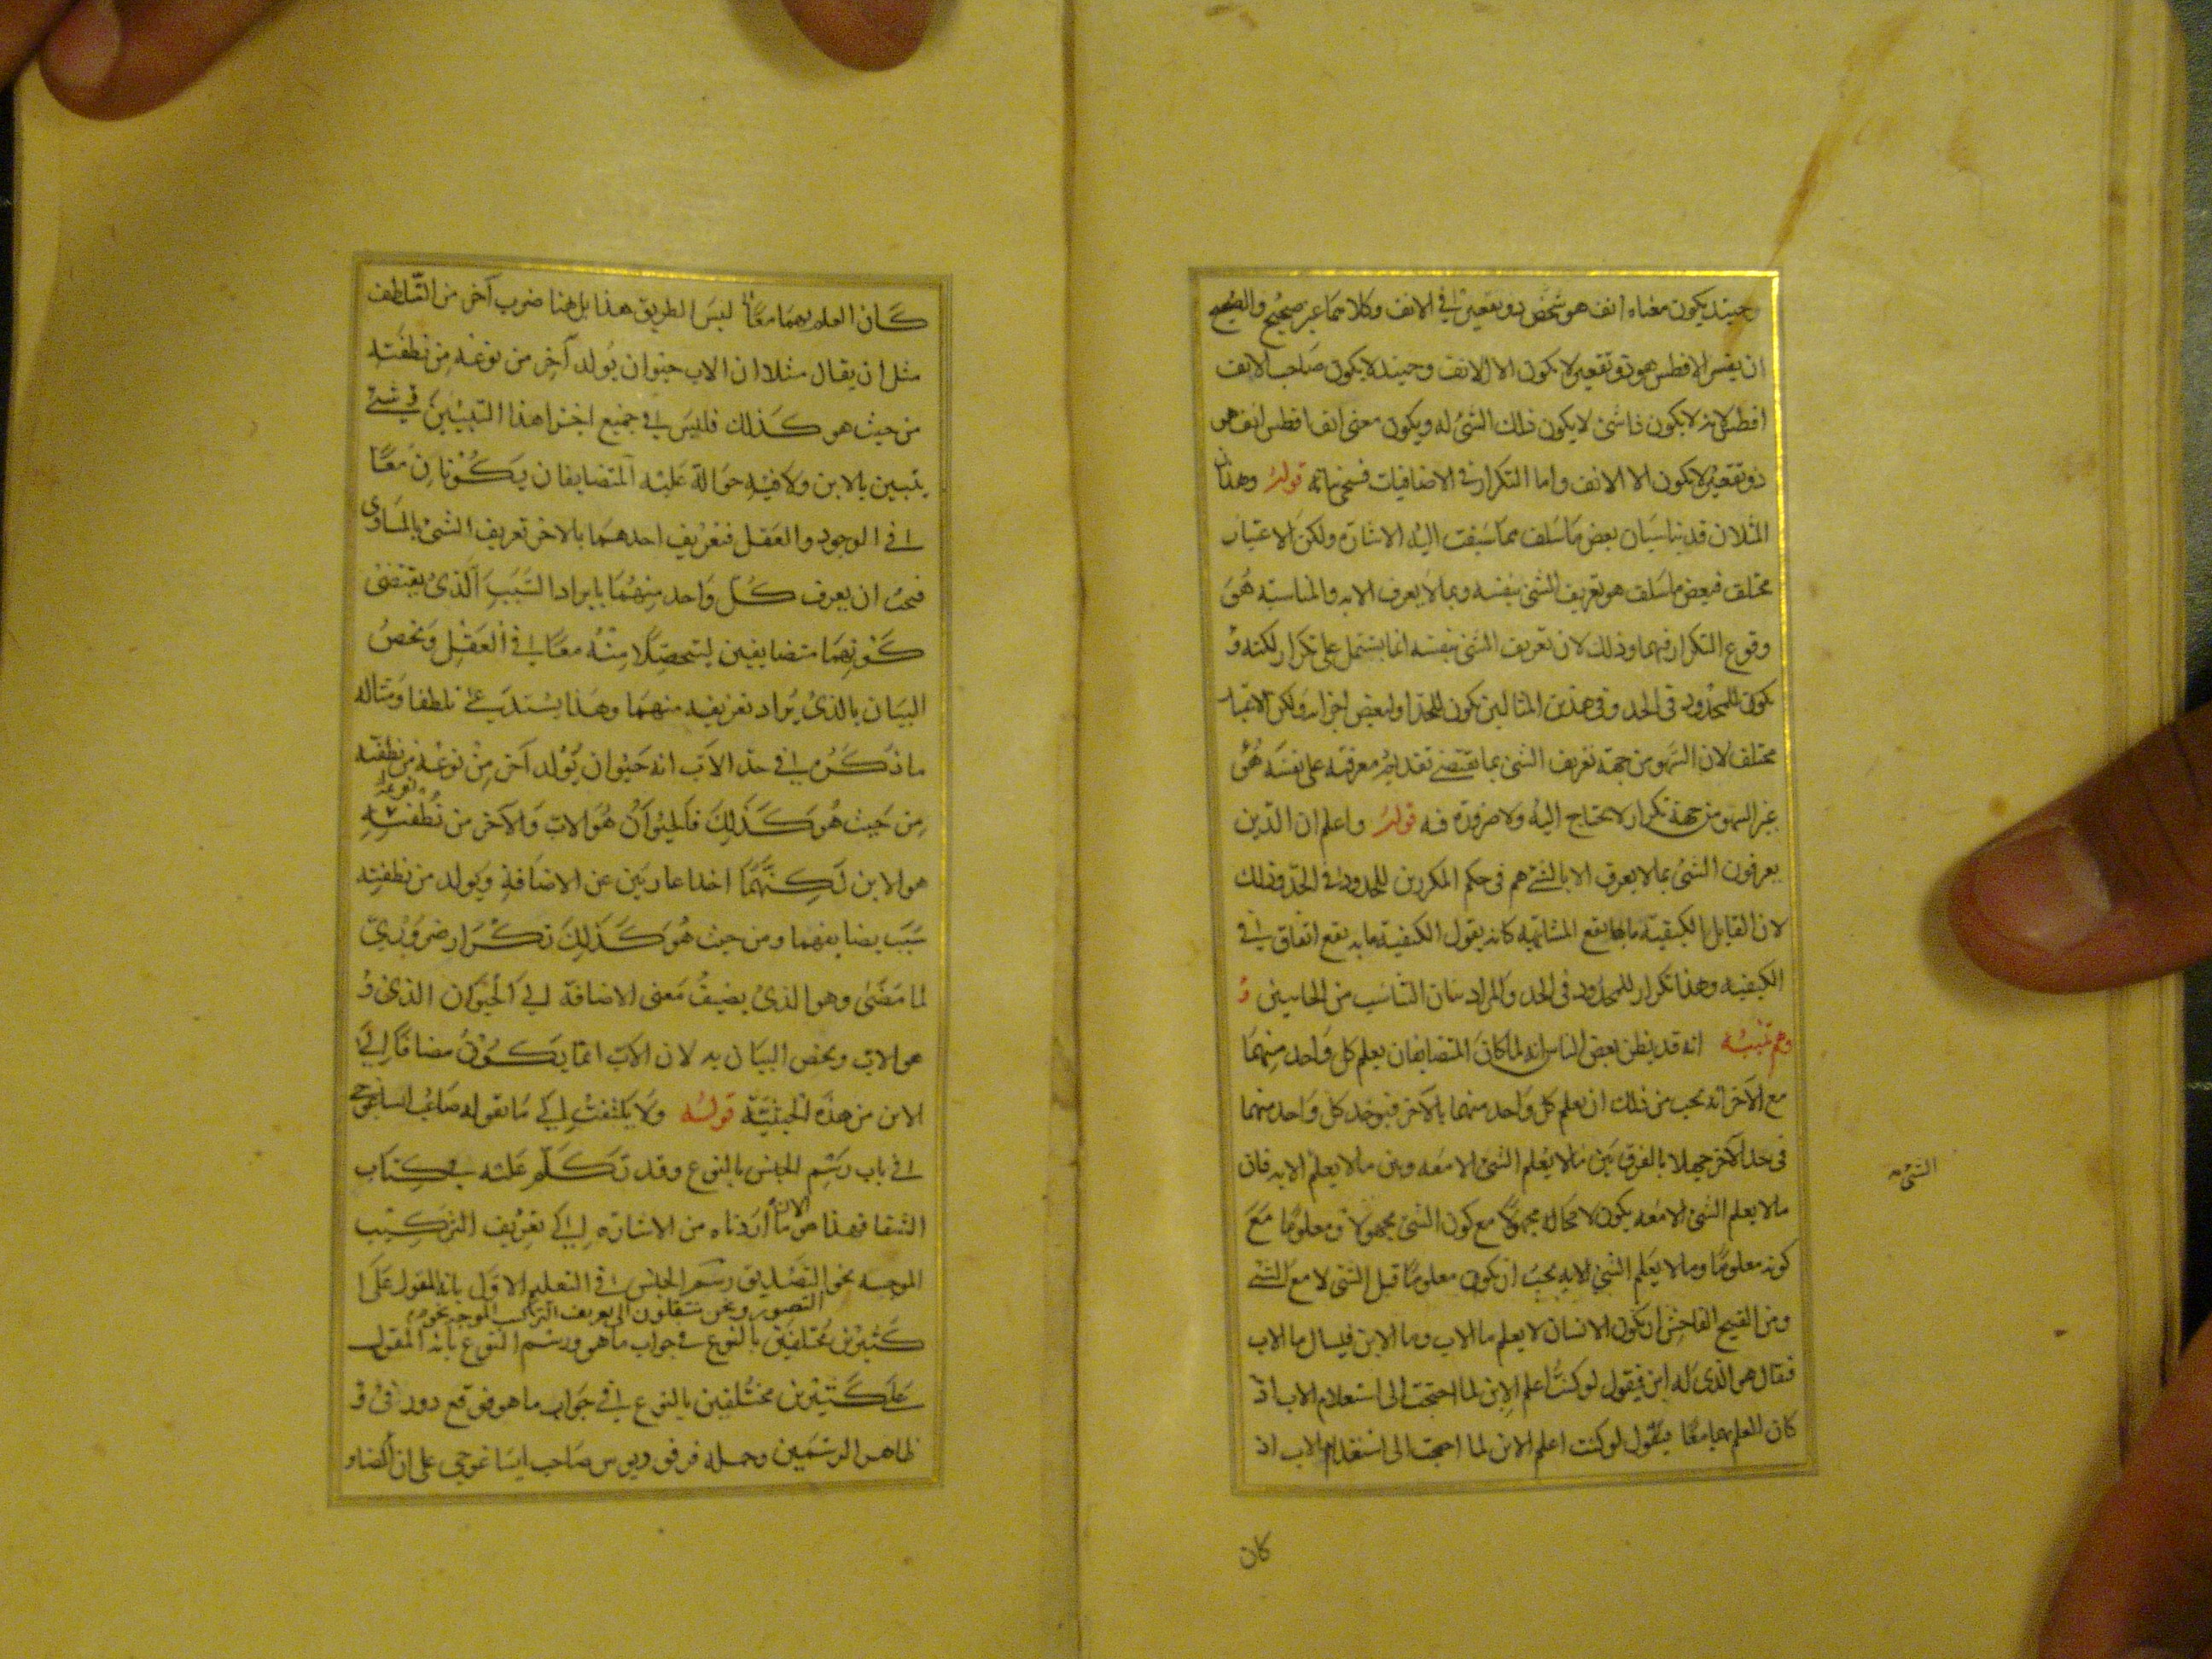 وحينئذ يكون معناه انف هو شخص ذو تقعير في الانف وكلاهما غير صحيح والصحيح
ان يفسر الافطس هو ذو تقعير لا يكون الا الانف وحينئذ لا يكون صاحب الانف
افطس لانه لا يكون ذا شئ لا يكون ذلك الشئ له ويكون معنى انف افطس انف هو
ذو تقعير لا يكون الا الانف واما التكرار في الاضافيات فسيجئ بيانه قوله وهذان
المثلان قد يناسبان بعض ما سلف مما سبقت اليه الاشارة ولكن الاعتبار
مختلف فبعض ما سلف هو تعريف الشئ بنفسه وبما لا يعرف الا به والمناسبة هو
وقوع التكرار فيهما وذلك لان تعريف الشئ بنفسه انما يشتمل على تكرار لكنه
يكون للمحدود في الحد وفي هذين المثالين يكون للحد او لبعض اجزائه ولكن الاعتبار
مختلف لان السهو من جهة تعريف الشئ بما يقتضى تقديم معرفته على نفسه هو
غير السهو من جهة تكرار لا يحتاج اليه ولا ضرورة فيه قوله واعلم ان الذين
يعرفون الشئ بما لا يعرف الا بالشئ هم في حكم المكررين للمحدود في الحد وذلك
لان القايل الكيفية ما بها يقع المشابهة كانه يقول الكيفية ما به يقع اتفاق في
الكيفية وهذا تكرار للمحدود في الحد والمراد بيان التناسب من الجانبين
وهم تنبيه انه قد يظن بعض الناس انه لما كان المتضايفان يعلم كل واحد منهما
مع الآخر انه يجب من ذلك ان يعلم كل واحد منهما بالآخر فيوخذ كل واحد منهما
في حد الآخر جهلا بالفرق بين ما لا يعلم الشئ الا معه وبين ما لا يعلم الا به فان
ما لا يعلم الشئ الا معه يكون لا محالة مجهولا مع كون الشئ مجهولا ومعلوما مع
كونه معلوما وما لا يعلم الشئ الا به يجب ان يكون معلوما قبل الشئ لا مع الشئ
ومن القبيح الفاحش ان يكون الانسان لا يعلم ما الاب وما الابن فيسال ما الاب
فقال هو الذى له ابن فيقول لو كنت اعلم الابن لما احتجت الى استعلام الاب اذ
كان العلم بهما معا فيقول لو كنت اعلم الابن لما احتجت الى الاب اذ
كان
الشئ
كان العلم بهما معا ليس الطريق هذا بل هنا ضرب آخر من التلطف
مثل ان يقال مثلا ان الاب حيوان يولد آخر من نوعه من نطفته
من حيث هو كذلك فليس في جميع اجزا هذا التبيين شئ
يتبين بالابن ولا فيه حوالة عليه المتضايفان يكونان معا
في الوجود والعقل فتعريف احدهما بالاخر تعريف الشئ بالمساوى
فيجب ان يعرف كل واحد منهما بايراد السبب الذى يقتضى
كونهما متضايفين ليتحصلا منه معا في العقل ويخص
البيان بالذى يراد تعريفه منهما وهذا يستدعى تلطفا ومثاله
ما ذكره في حد الاب انه حيوان يولد آخر من نوعه من نطفته
من حيث هو كذلك فالحيوان هو الاب والآخر من نوعه من نطفته
هو الابن لكنهما اخذا عاريين عن الاضافة ويولد من نطفته
سبب تضايفهما ومن حيث هو كذلك تكرار ضرورى
لما مضى وهو الذى يضيف معنى الاضافة الى الحيوان الذى
هو الاب ويخص البيان به لان الاب انما يكون مضافا الى
الابن من هذه الحيثية قوله ولا يلتفت الى ما يقوله صاحب ايساغوجى
في باب رسم الجنس بالنوع وقد تكلم عليه في كتاب
الشفا فهذا هو ما اردناه الآن من الاشارة الى تعريف التركيب
الموجه نحو التصديق رسم الجنس في التعليم الاول بانه المقول على
التصور ونحن منتقلون الى تعريف التركيب الموجه نحو
كثيرين مختلفين بالنوع في جواب ما هو ورسم النوع بانه المقول
على كثيرين مختلفين بالنوع في جواب ما هو فوقع دور في
ظاهر الرسمين وحمله فرفوريوس صاحب ايساغوجى على ان المضاف